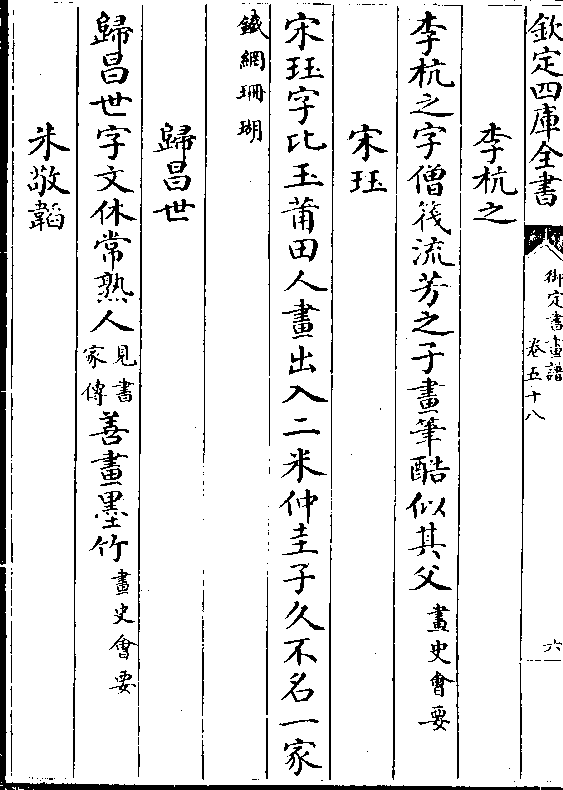 欽定四庫全書
御定書畫譜
卷五十八
六
李杭之
李杭之字僧筏流芳之子畫筆酷似其父畫史會要
宋珏
宋珏字比玉莆田人畫出入二米仲圭子久不名一家
鐵網珊瑚
歸昌世
歸昌世字文休常熟人見書家傳善畫墨竹畫史會要
朱敬韜